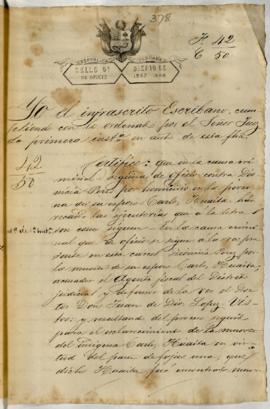 378
N. 42
C 50
SELLO 6º
DE OFICIO
BIENIO DE
1867 1868
Yo el infrascrito Escribano, cum
pliendo con lo ordenado por el Señor Juez
de primera inst.ª en auto de esta fha.
42
50
Certifico: que en la causa cri
minal seguida de oficio contra Dio
nicia por homicidio en la perso
na de su esposo Carlo Huaita
las ejecutorias que a la letra
son como siguen: en la causa crimi
nal que de oficio se sigue a la
sente en esta carcel por
la muerte de su esposo Carlo Huaita,
acusador el Agente fiscal del Distrito
judicial y defensor de la reo el Doc
tor Don Juan de Dios Lopez
y resultando del proceso seguido
para el esclarecimiento de la muerte
del indigena Carlo Huaita en
virtud del parte de fojas una, que
dicho Huaita fue encontrado muer